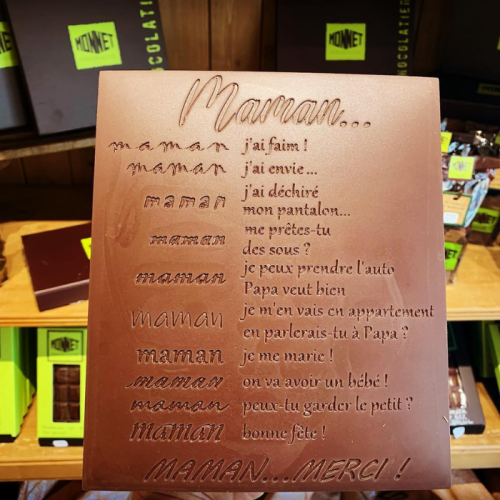 MONNET
CHOCOLATIER
MONNET
CHOCOLATIER
Maman...
maman j'ai faim !
maman j'ai envie...
maman j'ai déchiré
mon pantalon...
maman me prêtes-tu
des sous ?
maman je peux prendre l'auto
Papa veut bien
maman je m'en vais en appartement
en parlerais-tu à Papa ?
maman je me marie !
maman on va avoir un bébé !
maman peux-tu garder le petit ?
maman bonne fête !
MAMAN...MERCI !
MONNET